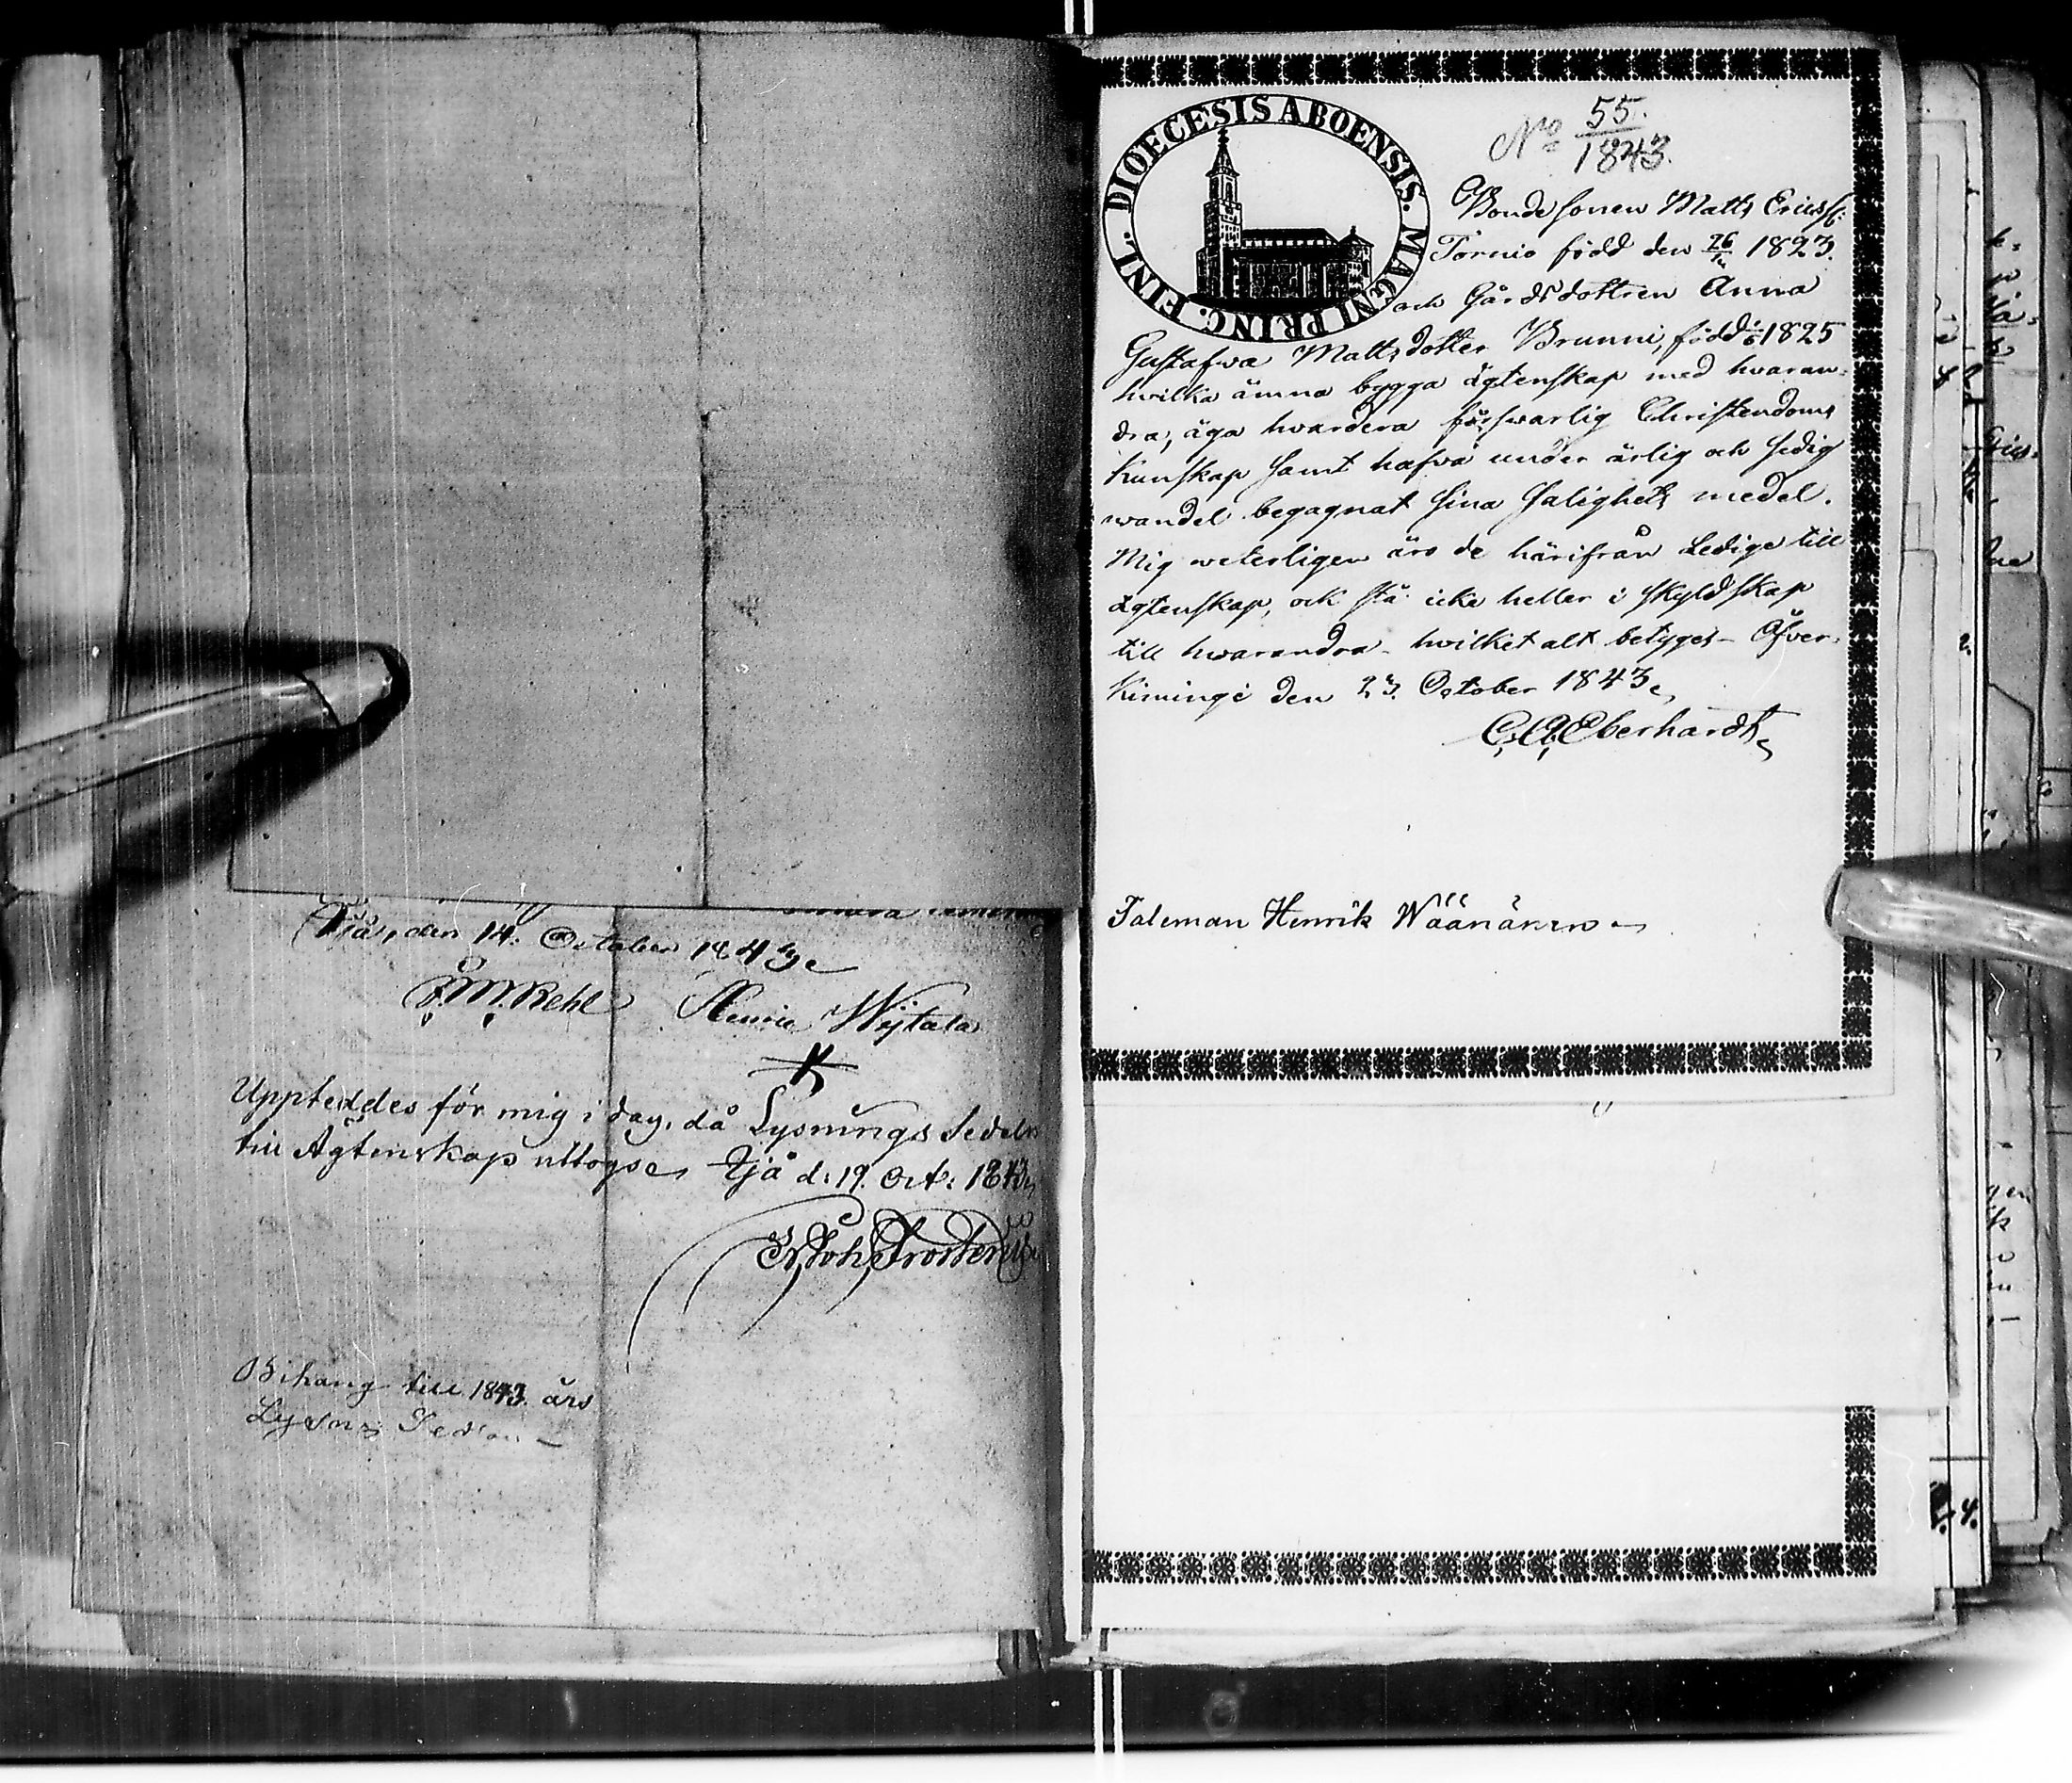 Ijå, den 14. October 1843
J. M. Rehl Henric Wijtala
Uppteddes för mig i dag, då Lysnings Sedeln
till Ägtenskap uttogs Ijå d: 19. Oct: 1843
Bihang till 1843 års
Lysnings Sedlar
DIOECESIS ABOENSIS. MAGNI PRINC. FINL.
No 55.
1843.
Bondesonen Matts Ericss:
Tornio född den 26/ 1823.
och Gårdsdottren Anna
Gustafwa Mattsdotter Brunni, född 1825
hvilka ämna bygga ägtenskap med hvaran-
dra, äga hvardera försvarlig Christendoms
Kunskap samt hafva under ärlig och sedig
wandel begagnat sina salighets medel.
Mig weterligen äro de härifrån Ledige till
ägtenskap, och stå icke heller i skyldskap
till hwarandra - hvilket alt betyges - Öfver-
Kiminge den 23. October 1843
C. A. Eberhardt
Taleman Henrik Wäänänen